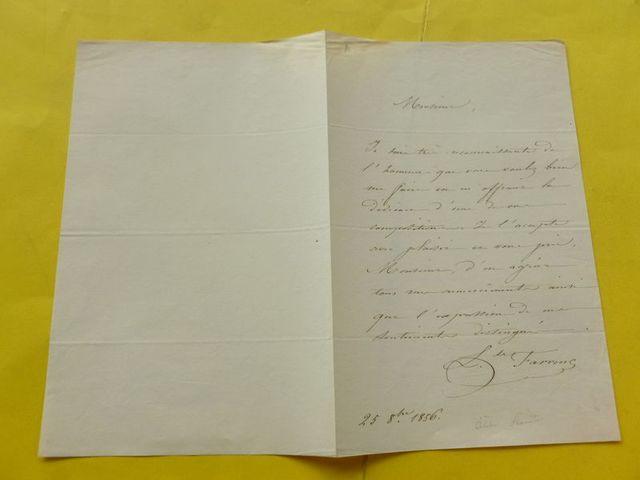 Monsieur,
Je suis très reconnaissante de
l'honneur que vous voulez bien
me faire en m'offrant la
dédicace d'une de vos
compositions. Je l'accepte
avec plaisir et vous prie,
Monsieur, d'en agréer
tous mes remerciements ainsi
que l'expression de mes
sentiments distingués
L. Farrenc
25 8bre 1856.